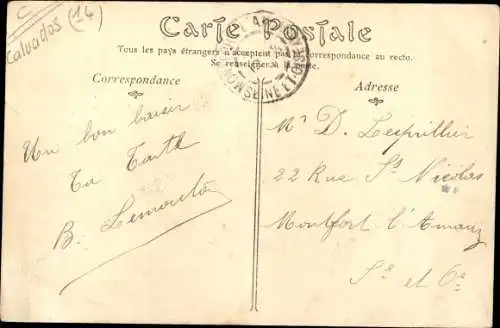 C
Calvados (14)
Carte Postale
Tous les pays étrangers n'acceptent pas la correspondance au recto.
Se renseigner à la poste.
Correspondance
Un bon baiser
Ta Tante
B. Lemonton
Adresse
Mr D. Lesprillier
22 Rue St Nicolas
Montfort l'Amaury
Se et Oe